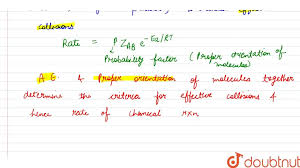 collisions
Rate = P Z_AB e^-Ea/RT
Probability factor (Proper orientation of
molecules)
A.E. & Proper orientation of molecules together
determine the criteria for effective collisions &
hence rate of chemical rxn
doubtnut